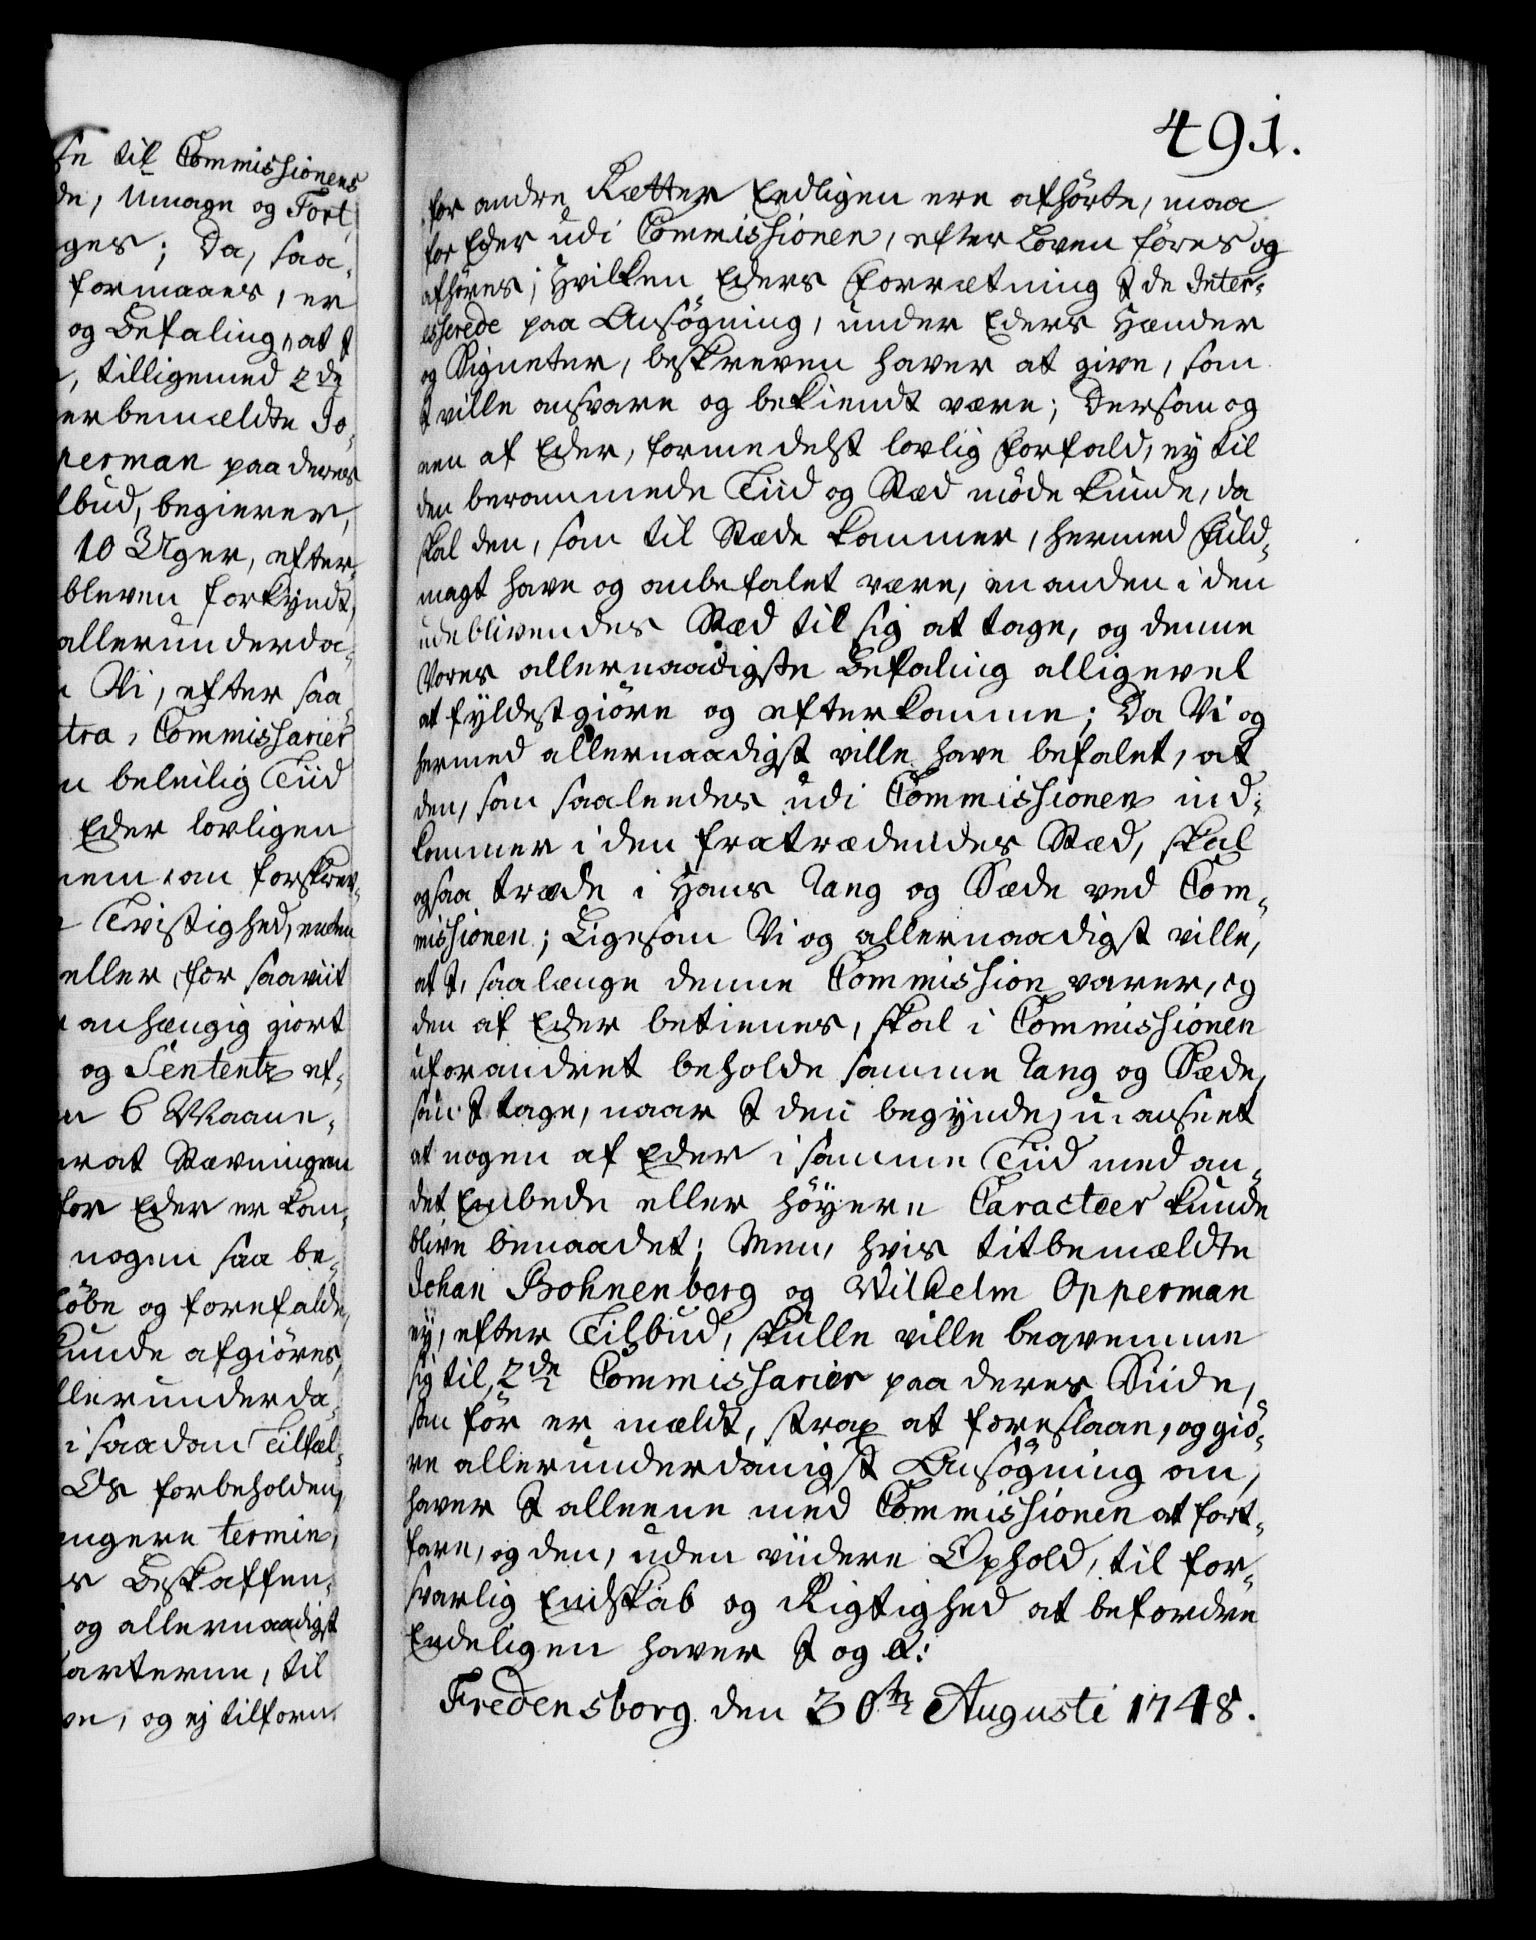 se til Commissionens
de, Umage og Fort
ges; Da, saa¬
formaaes, er
og Befaling, at I
, tilligemed 2de
erbemeldte Jo¬
perman paa deres
lbud, begierer,
10 Uger, efter¬
bleven forkyndt,
allerunderda¬
Vi, efter saa
tra, Commissarier
n beleilig Tiid
Eder lovligen
nem an forskrev¬
Tvistighed, enten
eller, for saaviit
anhængig giort
og Sententz ef¬
n 6 Maane¬
erat Stævningen
for Eder er kom¬
nogen saa be¬
løbe og forefalde,
kunde afgiøres,
llerunderda¬
i saadan Tilfæl¬
Os forbeholden,
ængere termin,
s Beskaffen¬
og allernaadigst
arterne, til
ve, og ej tilforn
491.
for andre Retter Eedligen ere afhørte, maa
for Eder udi Commissionen, efter Loven føres og
afhøres; Hvilken Eders Forretning I de Inter¬
esserede paa Ansøgning, under Eders Hænder
og Signeter, beskreven haver at give, som
I ville ansvare og bekiendt være; Dersom og
een af Eder, formedelst lovlig Forfald, ey til
den berammede Tiid og Stæd møde kunde, da
skal den, som til Stæde kommer, hermed Fuld¬
magt have og anbefalet være, en anden i den
udeblivendes Stæd til sig at tage, og denne
Vores allernaadigste Befaling alligevel
at fyldestgiøre og efterkomme; Da Vi og
hermed allernaadigst ville have befalet, at
den, som saaleedes udi Commissionen ind¬
kommer i den fratrædendes Stæd, skal
ogsaa træde i Hans Rang og Sæde ved Com¬
missionen; Ligesom Vi og allernaadigst ville,
at I, saalænge denne Commission varer, og
den af Eder betienes, skal i Commissionen
uforandret beholde samme Rang og Sæde,
som I tage, naar I den begynde, u-anseet
at nogen af Eder i samme Tiid med an¬
det Embede eller høyere Caracteer kunde
blive benaadet; Men, hvis titbemældte
Johan Bohnenberg og Wilhelm Opperman
ey, efter Tilbud, skulle ville beqvemme
sig til, 2de Commissarier paa deres Siide,
som før er mældt, strax at foreslaae, og giö¬
re allerunderdanigst Ansøgning om,
haver I alleene med Commissionen at fort¬
fare, og den, uden viidere Ophold, til for¬
svarlig Endskab og Rigtighed at befordre
Endeligen haver I og &c:
Fredensborg den 30te Augusti 1748.